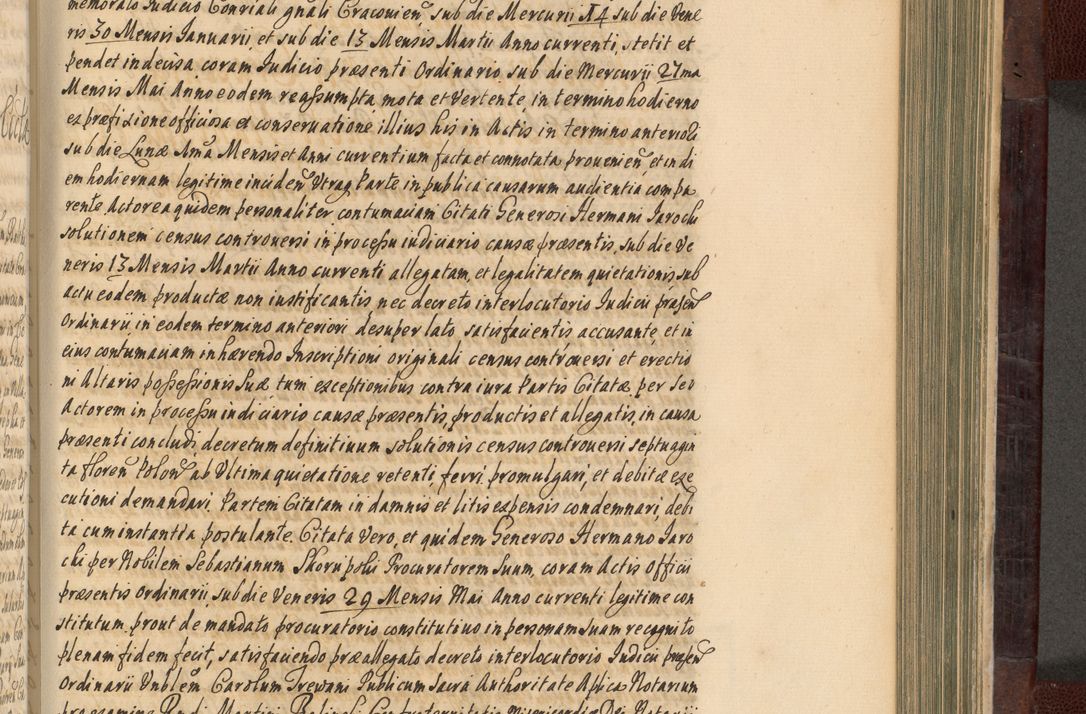 memorato Iudicio Consriali gnali Cracovien, sub die Mercurii 14 sub die Vene
ris 30 Mensis Ianuarii, et sub die 13 Mensis Martii Anno currenti, stetit et
pendet indecisa, coram Iudicio præsenti Ordinario sub die Mercurÿ 27ma
Mensis Mai Anno eodem reassumpta, mota et Vertente, in termino hodierno
ex præfixione officiosa et conservatione illius his in Actis in termino anteriori
sub die Lunæ Ama Mensis et Anni currentium facta et connotata provenien, et in di
em hodiernam legitime inciden Utraq Parte in publica causarum audientia compa
rente, Actorea quidem personaliter contumaciam Citati Generosi Hermani Iarochi
solutionem census controversi in processu iudiciario causæ præsentis, sub die Ve
neris 13 Mensis Martii Anno currenti allegatam, et legalitatem quietationis, sub
actu eodem productæ non iustificantis nec decreto interlocutorio Iudicii præsen
Ordinarii in eodem termino anteriori desuper lato satisfacientis accusante, et in
eius contumaciam inhærendo Inscriptioni originali census controversi et erectio
ni Altaris possessionis suæ tum exceptionibus contra iura Partis Citatæ per se
Actorem in processu indiciario causæ præsentis, productis et allegatis, in causa
præsenti concludi decretum definitivum solutionis census controversi septuagin
ta floren Polon ab Ultima quietatione retenti, ferri, promulgari, et debitæ exe
cutioni demandari. Partem Citatam in damnis et litis expensis condemnari, debi
ta cum instantia postulante. Citata Vero, et quidem Generoso Hermano Iaro
chi per Nobilem Sebastianum Skorupski Procuratorem Suum, coram Actis Officii
præsentis Ordinarii, sub die Veneris 29 Mensis Mai Anno currenti legitime con
stitutum, prout de mandato procuratorio constitutivo in personam suam recognito
plenam fidem fecit, satisfaciendo præallegato decreto interlocutorio Iudicii præsen
Ordinarii Vnblem Carolum Trewani Publicum Sacra Authoritate Aplica Notarium